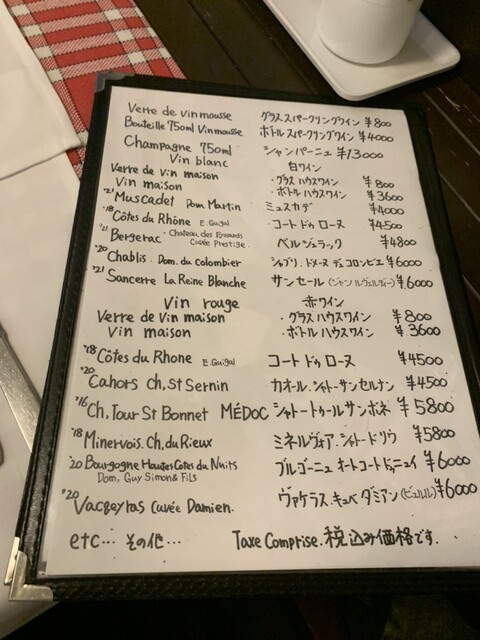 Verre de vin mousse グラススパークリングワイン ¥800
Bouteille 750ml Vin mousse ボトルスパークリングワイン ¥4000
Champagne 750ml シャンパーニュ ¥13000
Vin blanc 白ワイン
Verre de vin maison ・グラスハウスワイン ¥800
Vin maison ・ボトルハウスワイン ¥3600
'21 Muscadet Dom Martin ミュスカデ ¥4000
'18 Côtes du Rhône E.Guigal コートドゥローヌ ¥4500
'21 Bergerac Chateau des Eyssards Cuvée Prestige. ベルジュラック ¥4800
'20 Chablis. Dom. du Colombier シャブリ.ドメーヌデュコロンビエ ¥6000
'21 Sancerre La Reine Blanche サンセール (ジャンルヴェルディー) ¥6000
Vin rouge 赤ワイン
Verre de Vin maison ・グラスハウスワイン ¥800
Vin maison ・ボトルハウスワイン ¥3600
'18 Côtes du Rhone E.Guigal コートドゥローヌ ¥4500
'20 Cahors ch, St Sernin カオール.シャトーサンセルナン ¥4500
'16 Ch, Tour St Bonnet MÉDOC シャトートゥールサンボネ ¥5800
'18 Minervois. Ch, du Rieux ミネルヴォア.シャトードリウ ¥5800
'20 Bourgogne Hautes Cotes du Nuits ブルゴーニュオートコートドゥニュイ ¥6000
Dom, Guy Simon & Fils
'20 Vacqeyras Cuvée Damien. ヴァケラス.キュベダミアン ¥6000
etc… その他… Taxe Comprise. 税込み価格です.